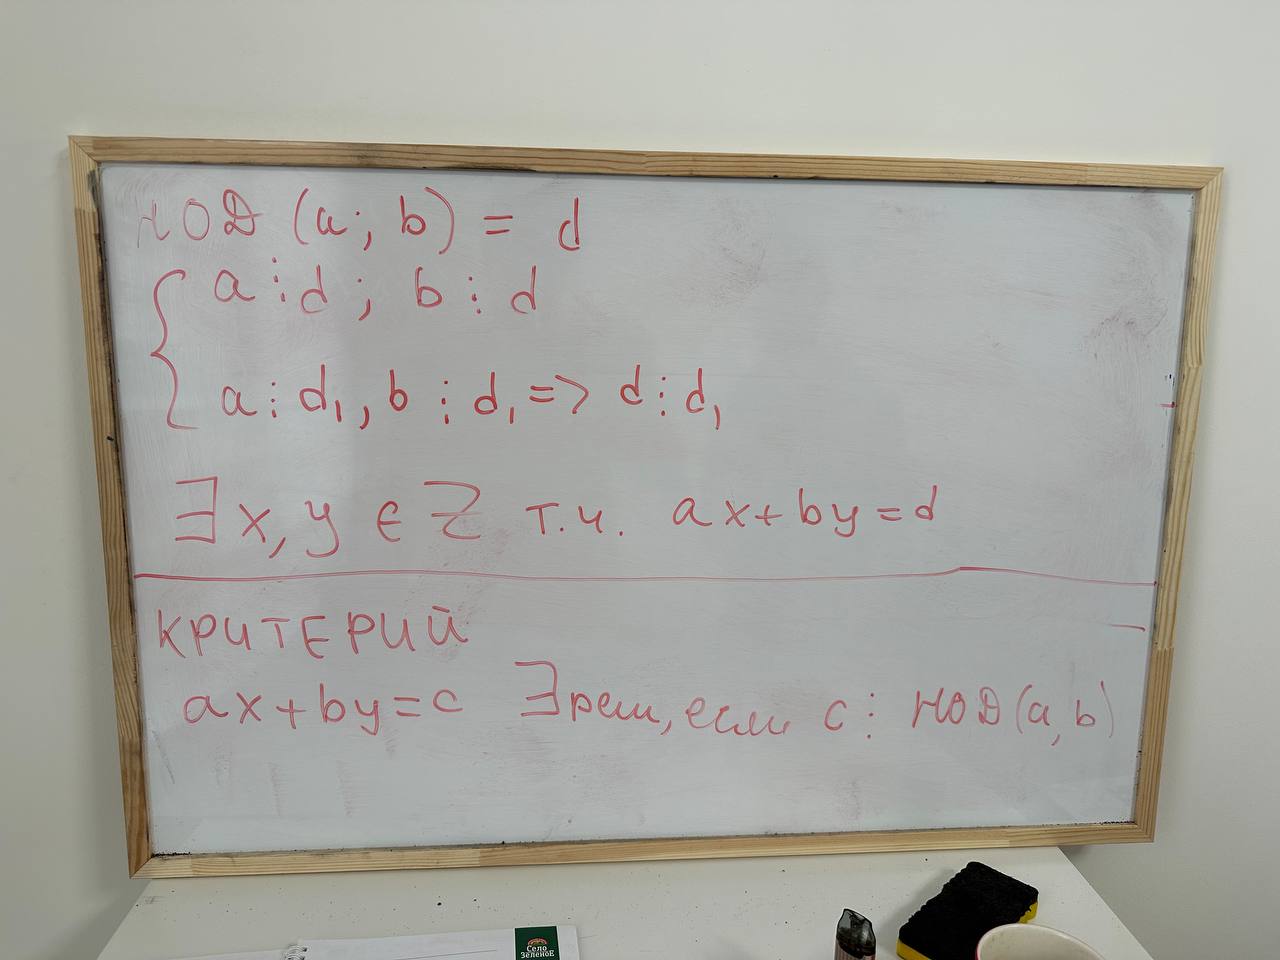 НОД (a; b) = d
{ a⋮d; b⋮d
a⋮d₁, b⋮d₁ => d⋮d₁
∃ x, y ∈ Z т.ч. ax+by=d
КРИТЕРИЙ
ax+by=c ∃ реш, если c⋮ НОД(a,b)
Село
Зелёное